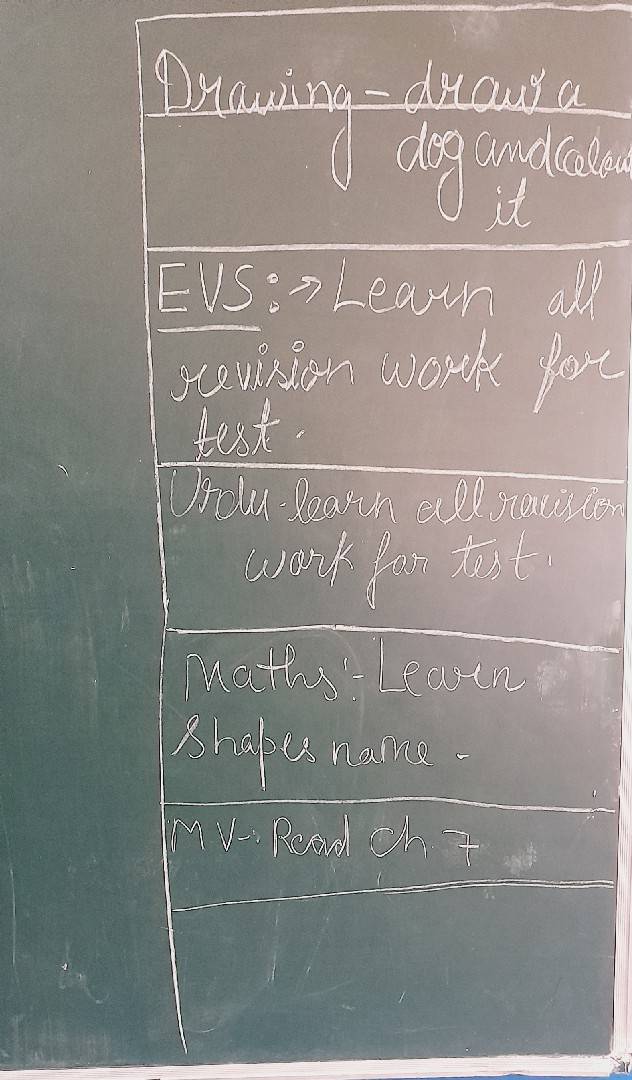 Drawing - draw a
dog and Colour
it
EVS :→ Learn all
revision work for
test.
Urdu - learn all revision
work for test.
Maths :- Learn
shapes name -
MV -. Read Ch. 7